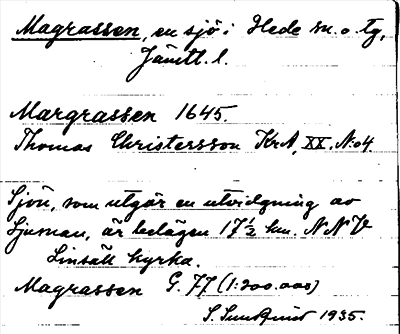 Magrassen, en sjö i Hede sn. o. tg,
Jämtl. l.
Margrassen 1645.
Thomas Christersson KrA, XX. N:o 4.
Sjön, som utgör en utvidgning av
Ljusnan, är belägen 17½ km. NNV
Linsäll kyrka.
Magrassen G. 77 (1:200.000)
S. Sundqvist 1935.